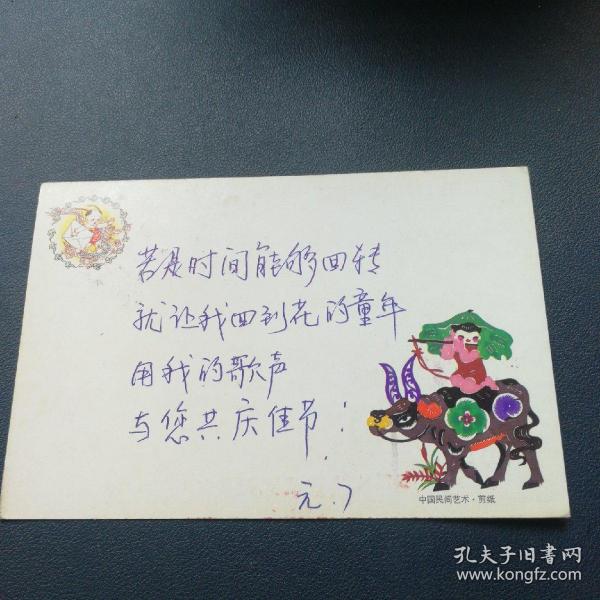 若是时间能够回转
就让我回到花的童年
用我的歌声
与您共庆佳节!
元.7
中国民间艺术·剪纸
孔夫子旧书网
www.kongfz.com